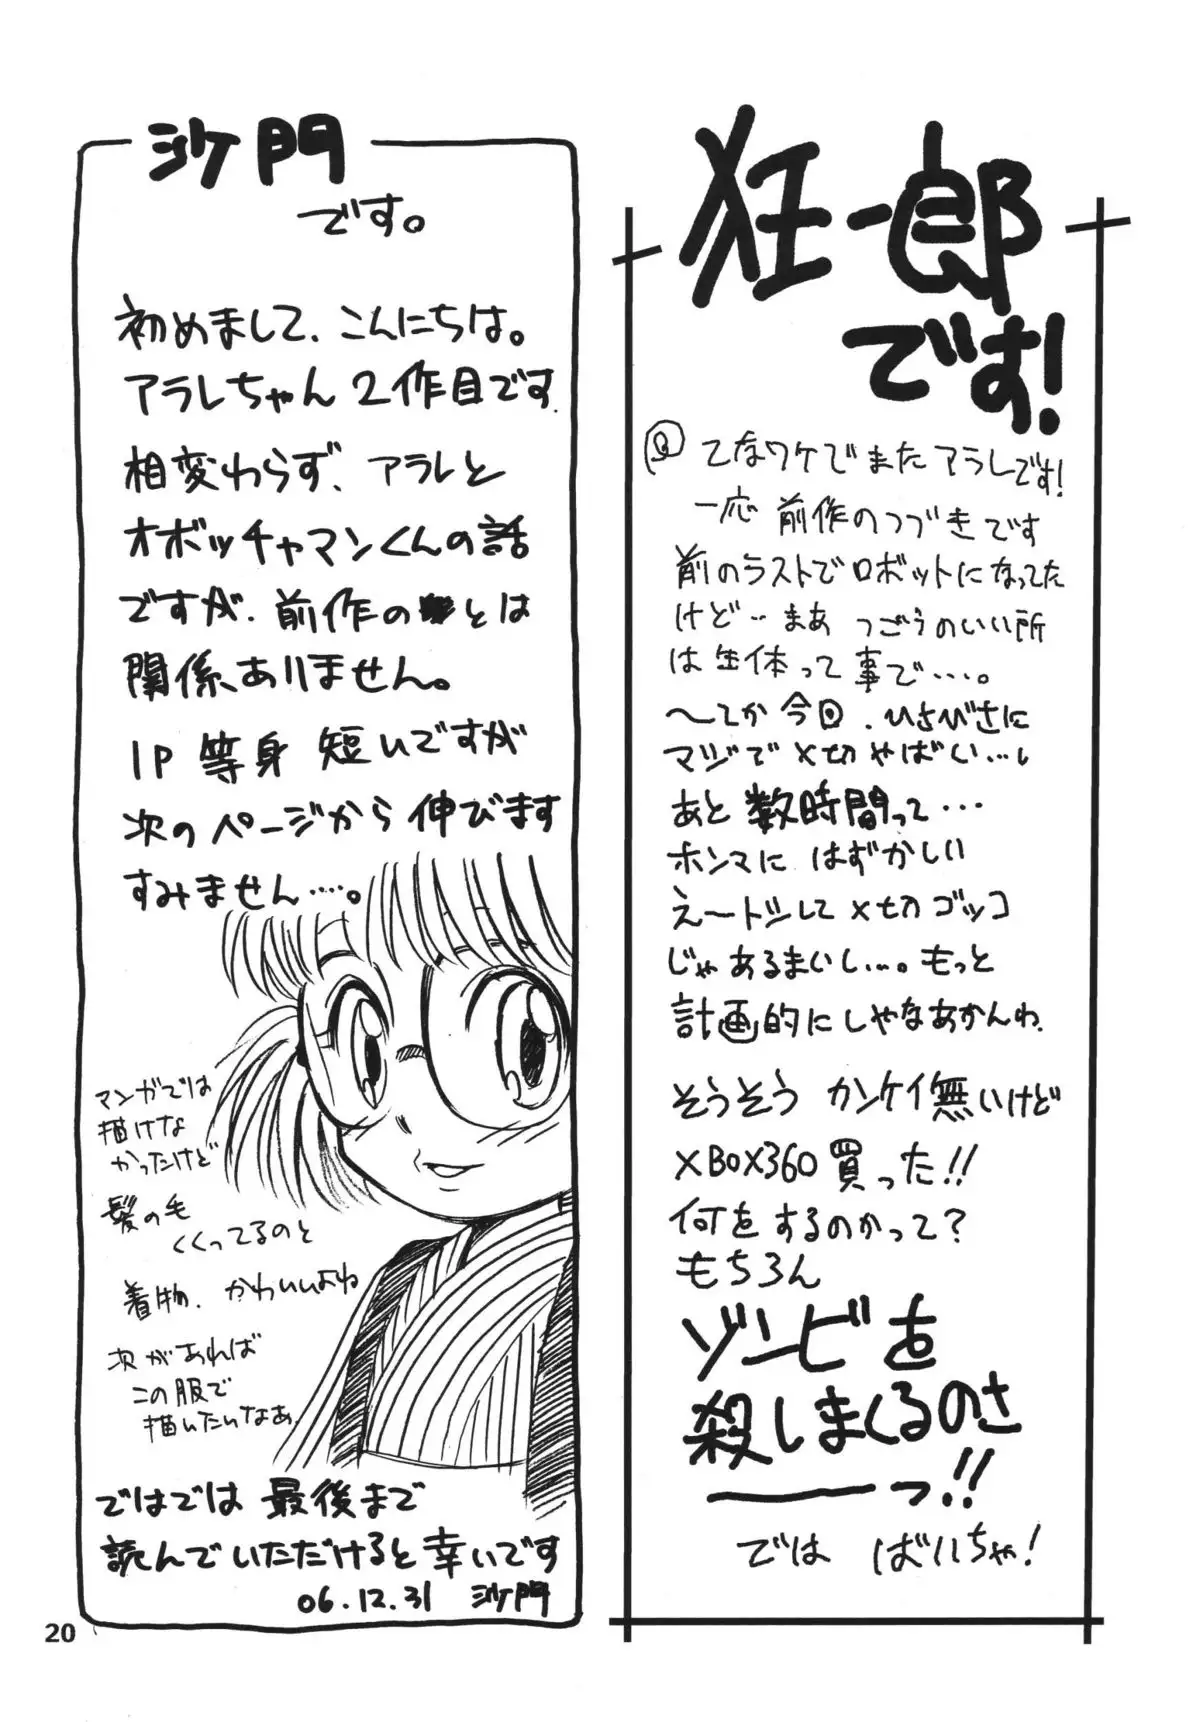 狂一郎
です!
てなワケでまたアラレです!
一応 前作のつづきです
前のラストでロボットになってた
けど‥まあ つごうのいい所
は生体って事で‥‥。
〜てか今回、ひさびさに
マジで〆切やばい…。
あと数時間って…
ホンマに はずかしい
え〜トシして〆切ゴッコ
じゃあるまいし…。もっと
計画的にしゃなあかんわ。
そうそう カンケイ無いけど
XBOX360買った!!
何をするのかって?
もちろん
ゾンビを
殺しまくるのさ
ーーっ!!
では ばいちゃ!
沙門
です。
初めまして、こんにちは。
アラレちゃん 2作目です。
相変わらず、アラレと
オボッチャマンくんの話
ですが、前作のとは
関係ありません。
1P 等身 短いですが
次のページから 伸びます
すみません‥‥。
マンガでは
描けな
かったけど
髪の毛
くくってるのと
着物、かわいいよね
次があれば
この服で
描いたいなあ。
ではでは 最後まで
読んでいただけると幸いです
06.12.31 沙門
20